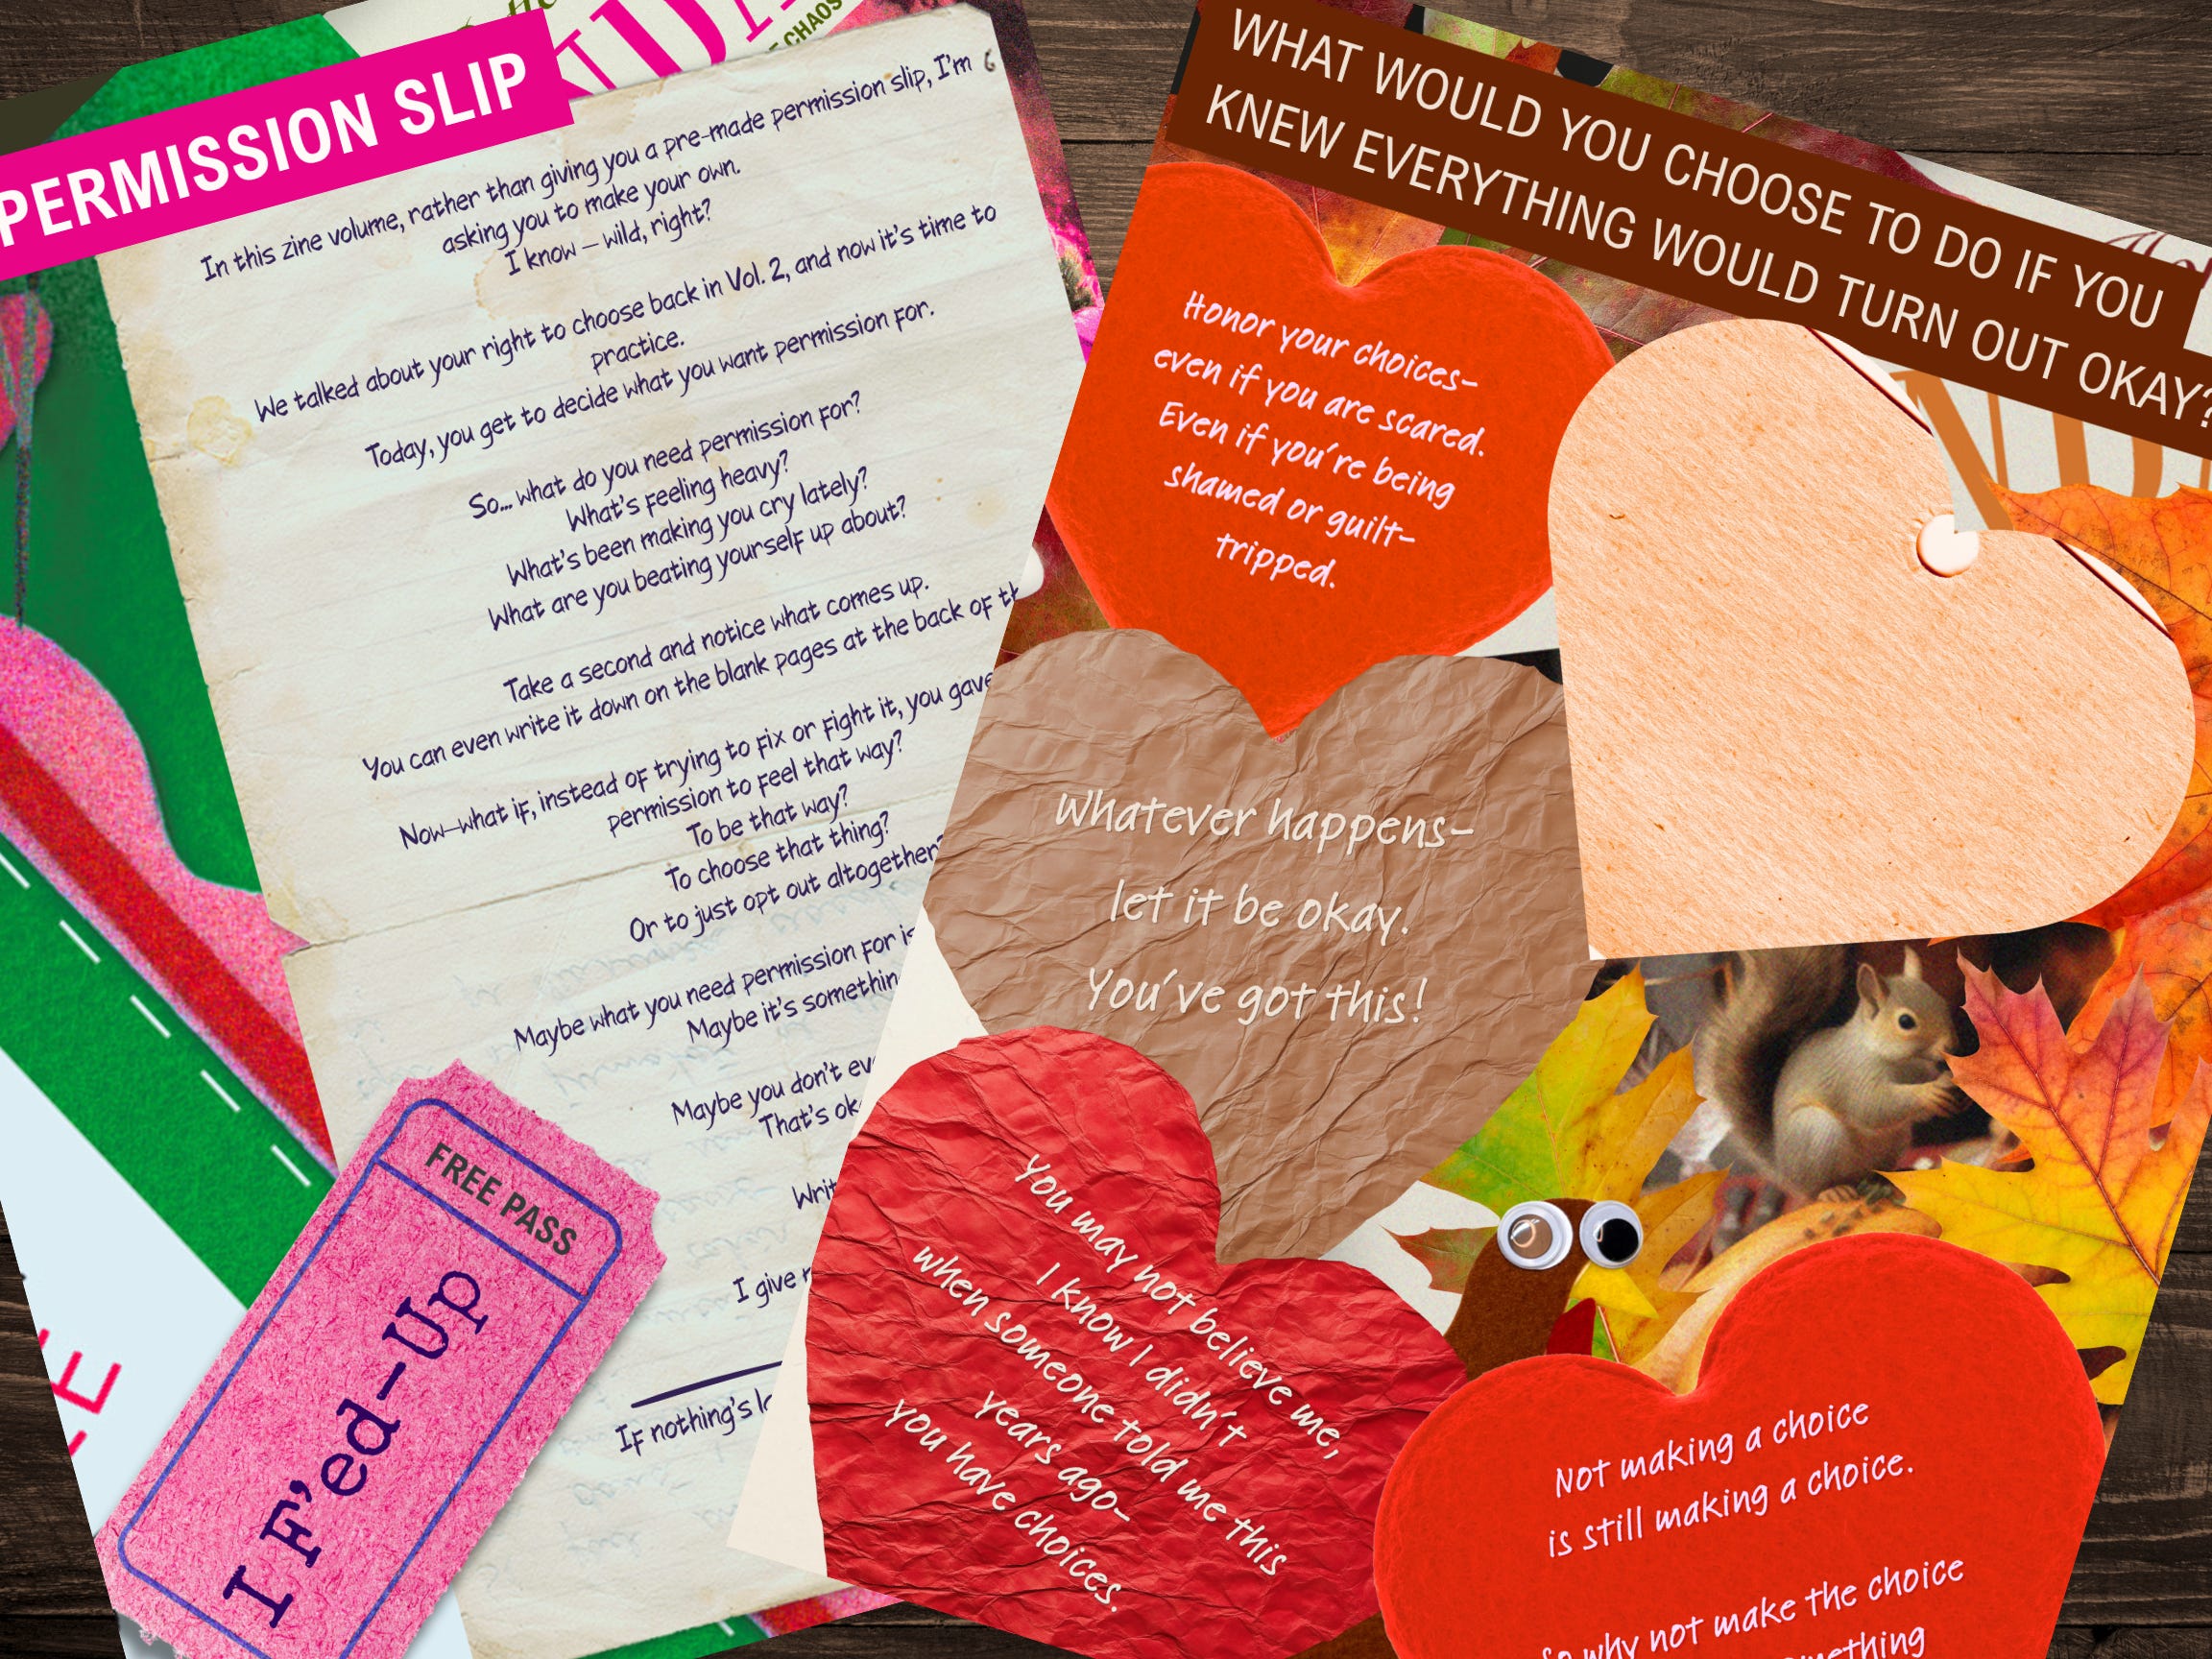 CHAOS
PERMISSION SLIP
In this zine volume, rather than giving you a pre-made permission slip, I'm
asking you to make your own.
I know – wild, right?
We talked about your right to choose back in Vol. 2, and now it's time to
practice.
Today, you get to decide what you want permission for.
So... what do you need permission for?
What's feeling heavy?
What's been making you cry lately?
What are you beating yourself up about?
Take a second and notice what comes up.
You can even write it down on the blank pages at the back of
Now—what if, instead of trying to fix or fight it, you gave
permission to feel that way?
To be that way?
To choose that thing?
Or to just opt out altogether?
Maybe what you need permission for is
Maybe it's
Maybe you don't
That's
I give
If nothing's
FREE PASS
I F'ed-Up
WHAT WOULD YOU CHOOSE TO DO IF YOU
KNEW EVERYTHING WOULD TURN OUT OKAY?
Honor your choices–
even if you are scared.
Even if you're being
shamed or guilt–
tripped.
Whatever happens–
let it be okay.
You've got this!
You may not believe me,
I know I didn't
when someone told me this
years ago–
you have choices.
Not making a choice
is still making a choice.
so why not make the choice
something